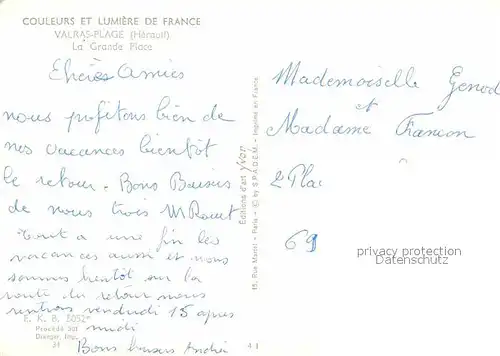 COULEURS ET LUMIÈRE DE FRANCE
VALRAS-PLAGE (Hérault)
La Grande Place
Chères Amies
nous profitons bien de
nos vacances bientôt
le retour. Bons Baisers
de nous trois M Rouet
Tout a une fin les
vacances aussi et nous
sommes bientôt sur la
route du retour nous
rentrons vendredi 15 apres
midi
Bons baisers Andrée
E. K. B. 3052
Procédé 301
Draeger, Imp.
31
41
Editions d'art Yvon
15, Rue Martel - Paris - © by S.P.A.D.E.M. - Imprimé en France
Mademoiselle Genod
et
Madame Francon
2 Pla
69
privacy protection
Datenschutz